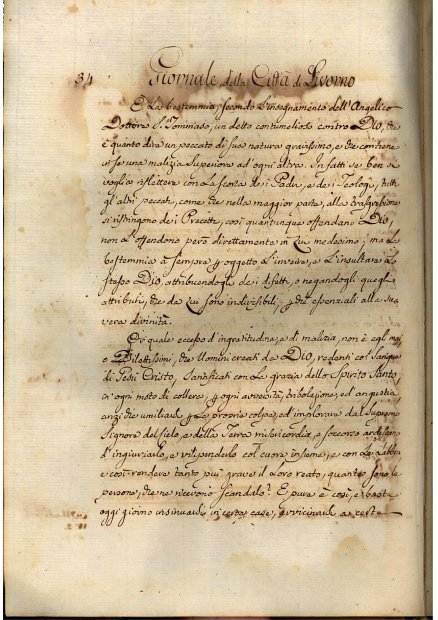 34 Giornale della Città di Livorno
È La bestemmia, secondo l'insegnamento dell'Angelico
Dottore S. Tommaso, un detto contumelioso contro DIO, che
è quanto dire un peccato di sua natura gravissimo, e che contiene
in se una malizia Superiore ad ogni altra. In fatti se ben si
voglia riflettere con La scorta dei Padri, e dei Teologi, tutti
gl'altri peccati, come che nella maggior parte, alla trasgressione
si ristringono dei Precetti, così quantunque offendano DIO,
non L'offendono però direttamente in Lui medesimo; ma La
bestemmia à sempre p oggetto L'inveire, e L'insultare Lo
stesso DIO, attribuendogli dei difetti, o negandogli quegli
attributi, che da Lui sono indivisibili, e che essenziali alla sua
vera divinità.
Di quale eccesso d'ingratitudine, e di malizia, non è egli mai
o Dilettissimi, che Uomini creati da DIO, redenti col Sangue
di Gesù Cristo, santificati con La grazia dello Spirito Santo,
in ogni moto di collera, p ogni avversità, tribolazione, ed angustia
anzi che umiliarsi p Le proprie colpe, ed implorare dal Supremo
Signore del Cielo, e della Terra misericordia, e soccorso ardiscano
d'ingiuriarlo, e vilipenderlo col cuore insieme, e con Le labbra
e così rendere tanto più grave il Loro reato, quante sono le
persone, che ne ricevono Scandalo? E pure è così, e basta
oggi giorno insinuarsi in certe case, avvicinarsi a certe